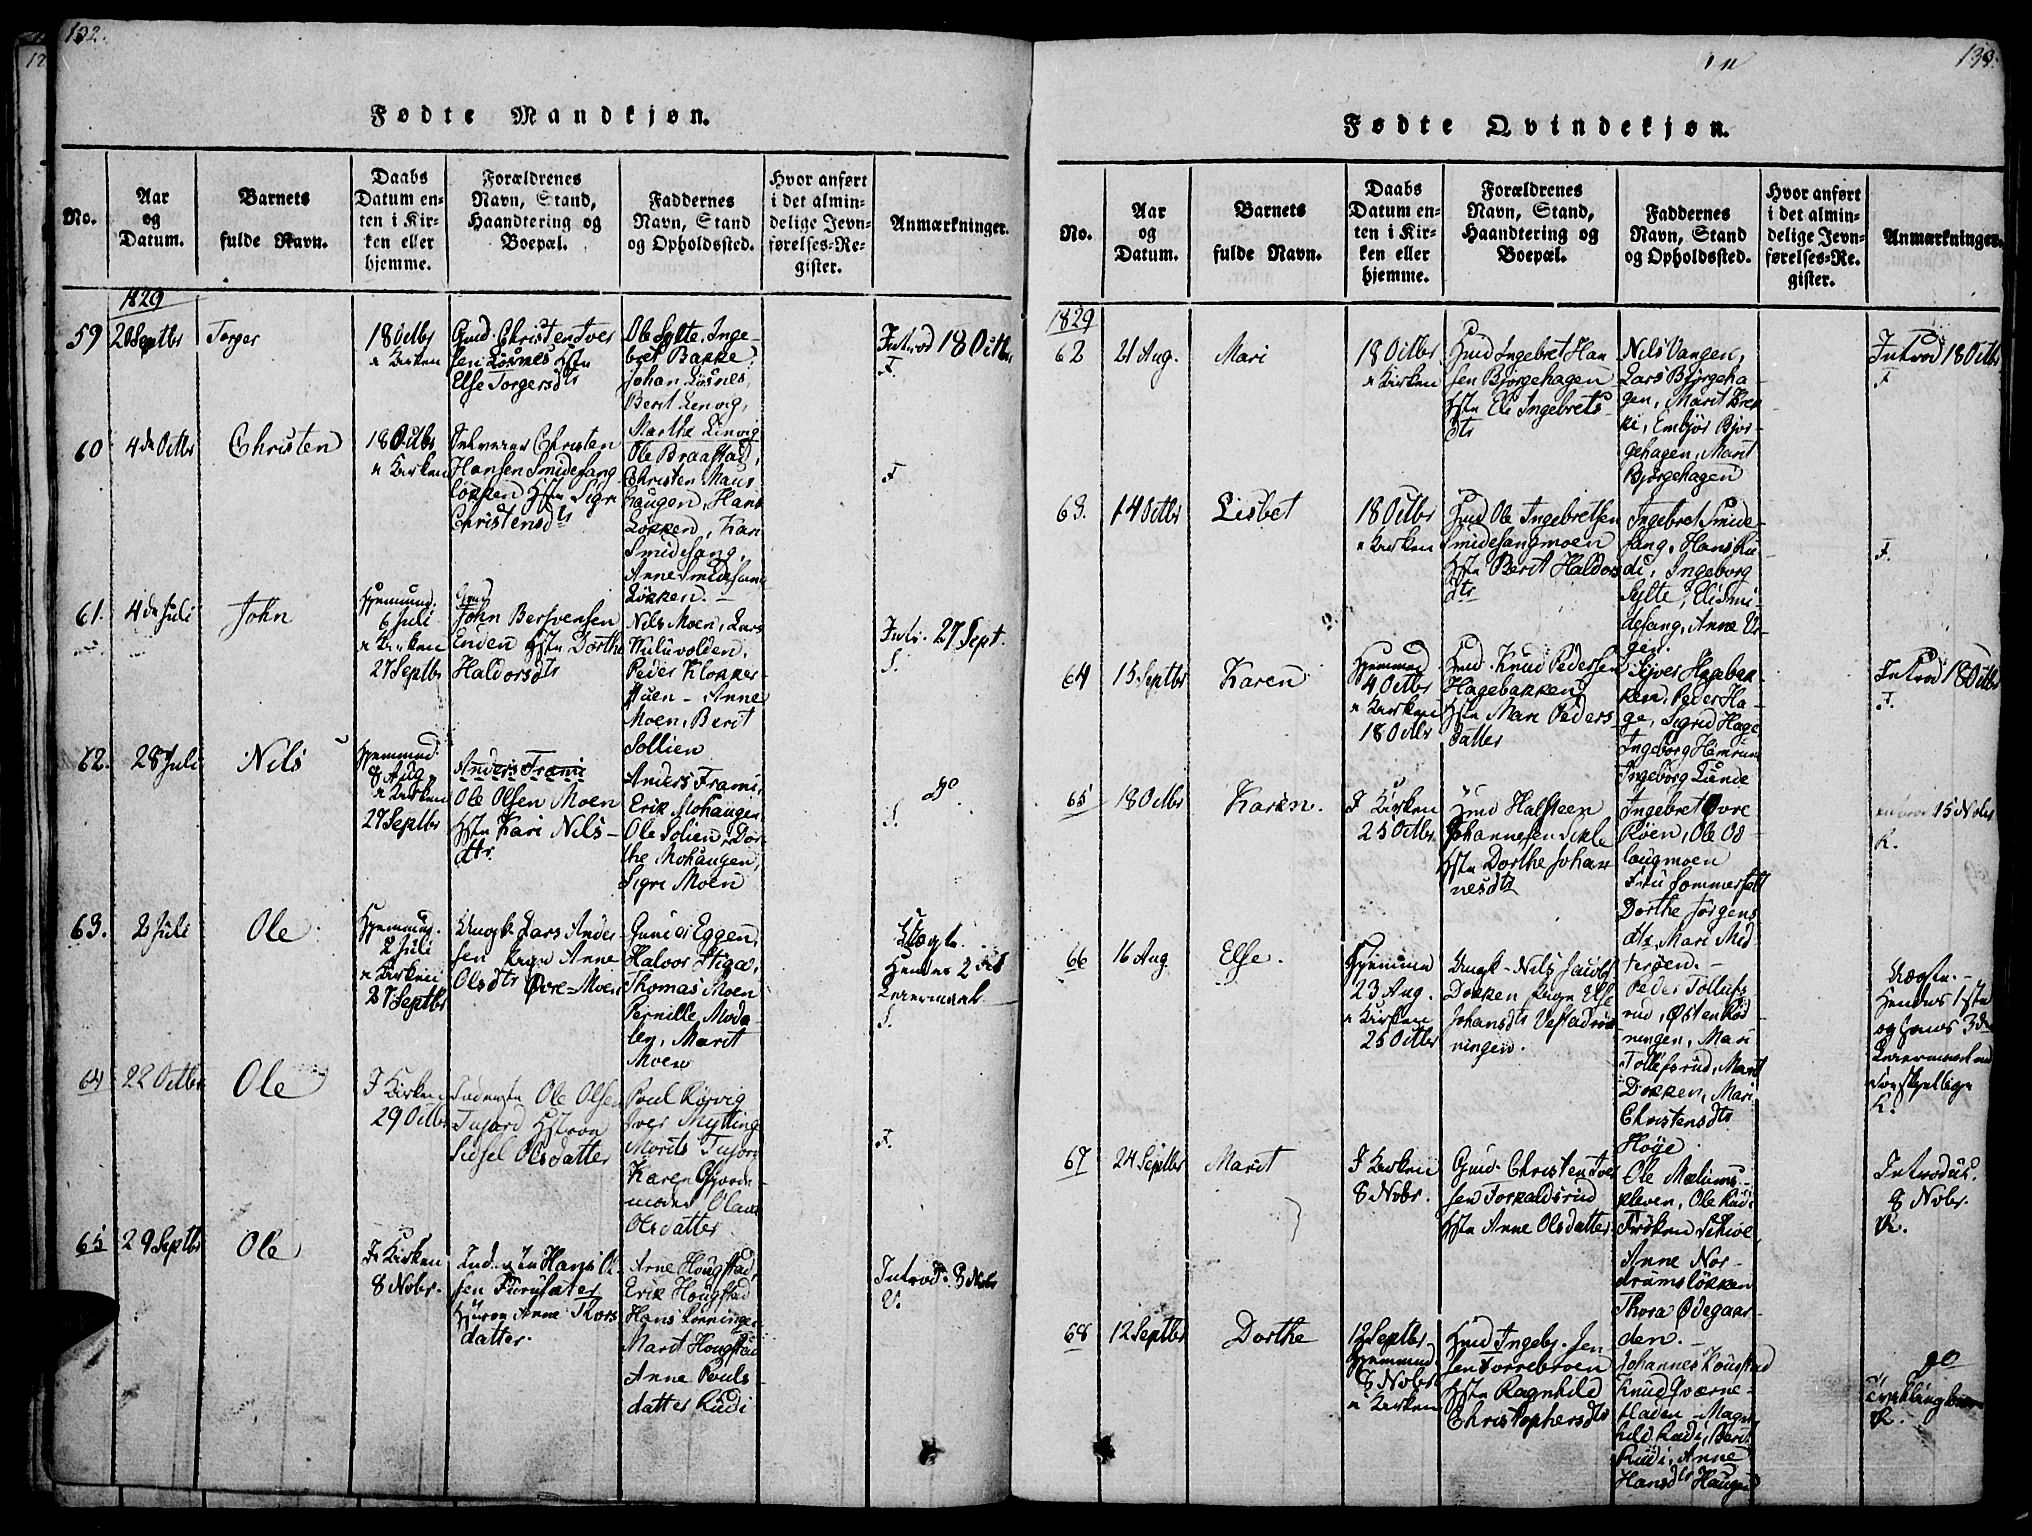 132.
Fødte Mandkjøn.
No.
Aar
og
Datum.
Barnets
fulde Navn.
Daabs
Datum en-
ten i Kir-
ken eller
hjemme.
Forældrenes
Navn, Stand,
Haandtering og
Boepæl.
Faddernes
Navn, Stand
og Opholdssted.
Hvor anført
i det almin-
delige Jevn-
førelses-Re-
gister.
Anmærkninger.
1829
59
20 Septbr
Torger
18 Octbr
Kirken
Gmd. Christen Iver
sen Løsnes Hstr
Else Torgersdtr
Ole Sylte, Inge-
bret Bakke,
Johan Løsnes,
Berit Lenvig,
Marthe Linvig
Introd 18 Octbr
F.
60
4de Octbr
Christen
18 Octbr
Kirken
Christen
Hansen Smidesang
løkken Hstr Sigri
Christensdtr
Ole Braastad,
Christen Maus
haugen, Hans
Løkken, Kari
Smidesang,
Anne Smidesang
Løkken.
F
61.
4de Juli
John
Hjemmed.
6 Juli
Kirken
27 Septbr
Gmd
John Bersvensen
Enden Hstr Dorthe
Haldorsdtr
Nils Moen, Lars
Huluvolden,
Peder Klokker-
Anne
Moen, Berit
Sollien
Intr. 27 Sept.
S.
62.
28 Juli
Nils
Hjemmed.
8 Aug
Kirken
27 Septbr
Anders Frami
Ole Olsen Moen
Hstr Kari Nils-
dtr.
Anders Frami,
Erik Mohaugen
Ole Solien, Dor
the Mohaugen,
Sigri Moen
do.
S.
63.
2 Juli
Ole
Hjemmed.
2 Juli
Kirken
27 Septbr
Ungk. Lars Ander-
sen Pigen Anne
Olsdtr Øvre-Moen
Gunder Eggen,
Halvor Stiga,
Thomas Moen
Pernille Moda-
len, Marit
Moen
Uægte.
Hendes 2det
Leiermaal
S.
64
22 Octbr
Ole
I Kirken
29 Octbr
Ole Olsen
Tufard Hstr
Sidsel Olsdatter
Poul Rørvig
Iver Mytting
Morits Tuford
Karen
Olsdatter
F.
65
29 Septbr
Ole
I Kirken
8 Novbr.
Hans Ol-
sen Furusæter
Anne Thors
datter.
Arne Hougstad,
Erik Hougstad
Hans Rønningen
Marit Hougstad
Anne Pouls-
datter Rudi
Introd. 8 Novbr
V.
133.
Fødte Qvindekjøn.
No.
Aar
og
Datum.
Barnets
fulde Navn.
Daabs
Datum en-
ten i Kir-
ken eller
hjemme.
Forældrenes
Navn, Stand,
Haandtering og
Boepæl.
Faddernes
Navn, Stand
og Opholdssted.
Hvor anført
i det almin-
delige Jevn-
førelses-Re-
gister.
Anmærkninger.
1829
62
21 Aug.
Mari
18 Octbr
Kirken
Hmd Ingebret Han
sen Bjørgehagen
Hstr Eli Ingebrets-
dtr
Nils Vangen,
Lars Bjørgeha-
gen, Marit Brek
ke, Embjør Bjør-
gehagen, Marit
Bjørgehagen
Introd 18 Octbr
F
63.
14 Octbr
Lisbet
18 Octbr
Kirken
Hmd Ole Ingebretsen
Smidesangmoen
Hstr Berit Haldors
dtr
Ingebret Smide-
sang, Hans Ru-
di, Ingeborg
Sylte, Eli Smi-
desang, Anne Ur-
gen.
F.
64
15 Septbr
Karen
Hjemmed
4 Octbr
Kirken
18 Octbr
Hmd. Knud Pedersen
Hagebakken
Hstr Mari Peders
datter
Siver Hagebak
ken, Peder Ha-
ge, Sigrid Hage
Ingeborg Hamrum
Ingeborg Lunde
Introd 18 Octbr
F.
65
18 Octbr
Karen.
I Kirken
25 Octbr
Hmd Halsteen
Johannesen
Hstr Dorthe Johan
nesdtr
Ingebret Øvre
Røen, Ole Od-
laugmoen
Fru Sommerfelt
Dorthe Jørgens
dtr, Mari Mid
terøen.
Introd 15 Novbr
K.
66
16 Aug
Else.
Hjemme
23 Aug.
Kirken
25 Octbr
Ungk. Nils Jacobs
Dokken Pigen Else
Johansdtr Vestadrøn
ningen.
Peder Tollefs
rud, Østen Røn
ningen, Mari
Tollefsrud, Marit
Dokken, Mari
Christensdtr
Høye.
Uægte.
Hendes 1ste
og hans 3die
Leiermaal med
forskjellige
K.
67
24 Septbr
Marit
I Kirken
8 Nobr.
Gmd. Christen Iver
sen Torkaldsrud
Hstr Anne Olsdatter
Ole Mælums-
kleven, Ole Rudi
Frøken Schive,
Anne Nor-
drumsløkken
Thora Ødegaar-
den.
Introduc.
8 Nobr.
K.
68
12 Septbr
Dorthe
12 Septbr.
Hjemmed
8 Nobr
Kirken
Hmd Ingebr. Jen
sen Torrebroen
Hstr Ragnhild
Christophersdtr
Johannes Koustad
Knud Qværne-
fladen - Magn
hild Rudi, Berit
Rudi, Anne
Hansdtr Haugen
do
Tvillingbørn
K.